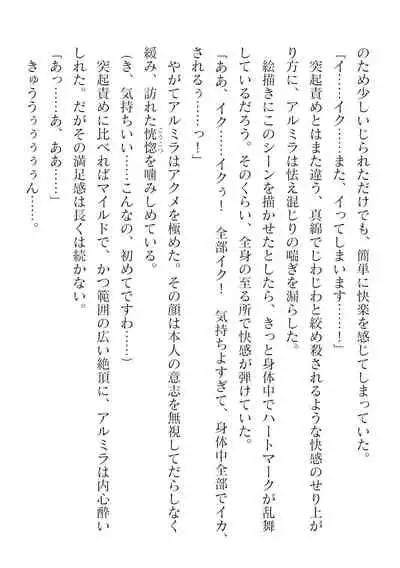 のため少しいじられただけでも、簡単に快楽を感じてしまっていた。
「イ……イク……また、イってしまいます……！」
突起責めとはまた違う、真綿でじわじわと絞め殺されるような快感のせり上が
り方に、アルミラは怯え混じりの喘ぎを漏らした。
絵描きにこのシーンを描かせたとしたら、きっと身体中でハートマークが乱舞
しているだろう。そのくらい、全身の至る所で快感が弾けていた。
「ああ、イク……イクぅ！　全部イク！　気持ちよすぎて、身体中全部でイカ、
されるぅ……っ！」
やがてアルミラはアクメを極めた。その顔は本人の意志を無視してだらしなく
緩み、訪れた恍惚を噛みしめている。
こうこつ
（き、気持ちいい……こんなの、初めてですわ……）
突起責めに比べればマイルドで、かつ範囲の広い絶頂に、アルミラは内心酔い
しれた。だがその満足感は長くは続かない。
「あっ……あ、ああ……」
きゅううぅぅぅぅん……。